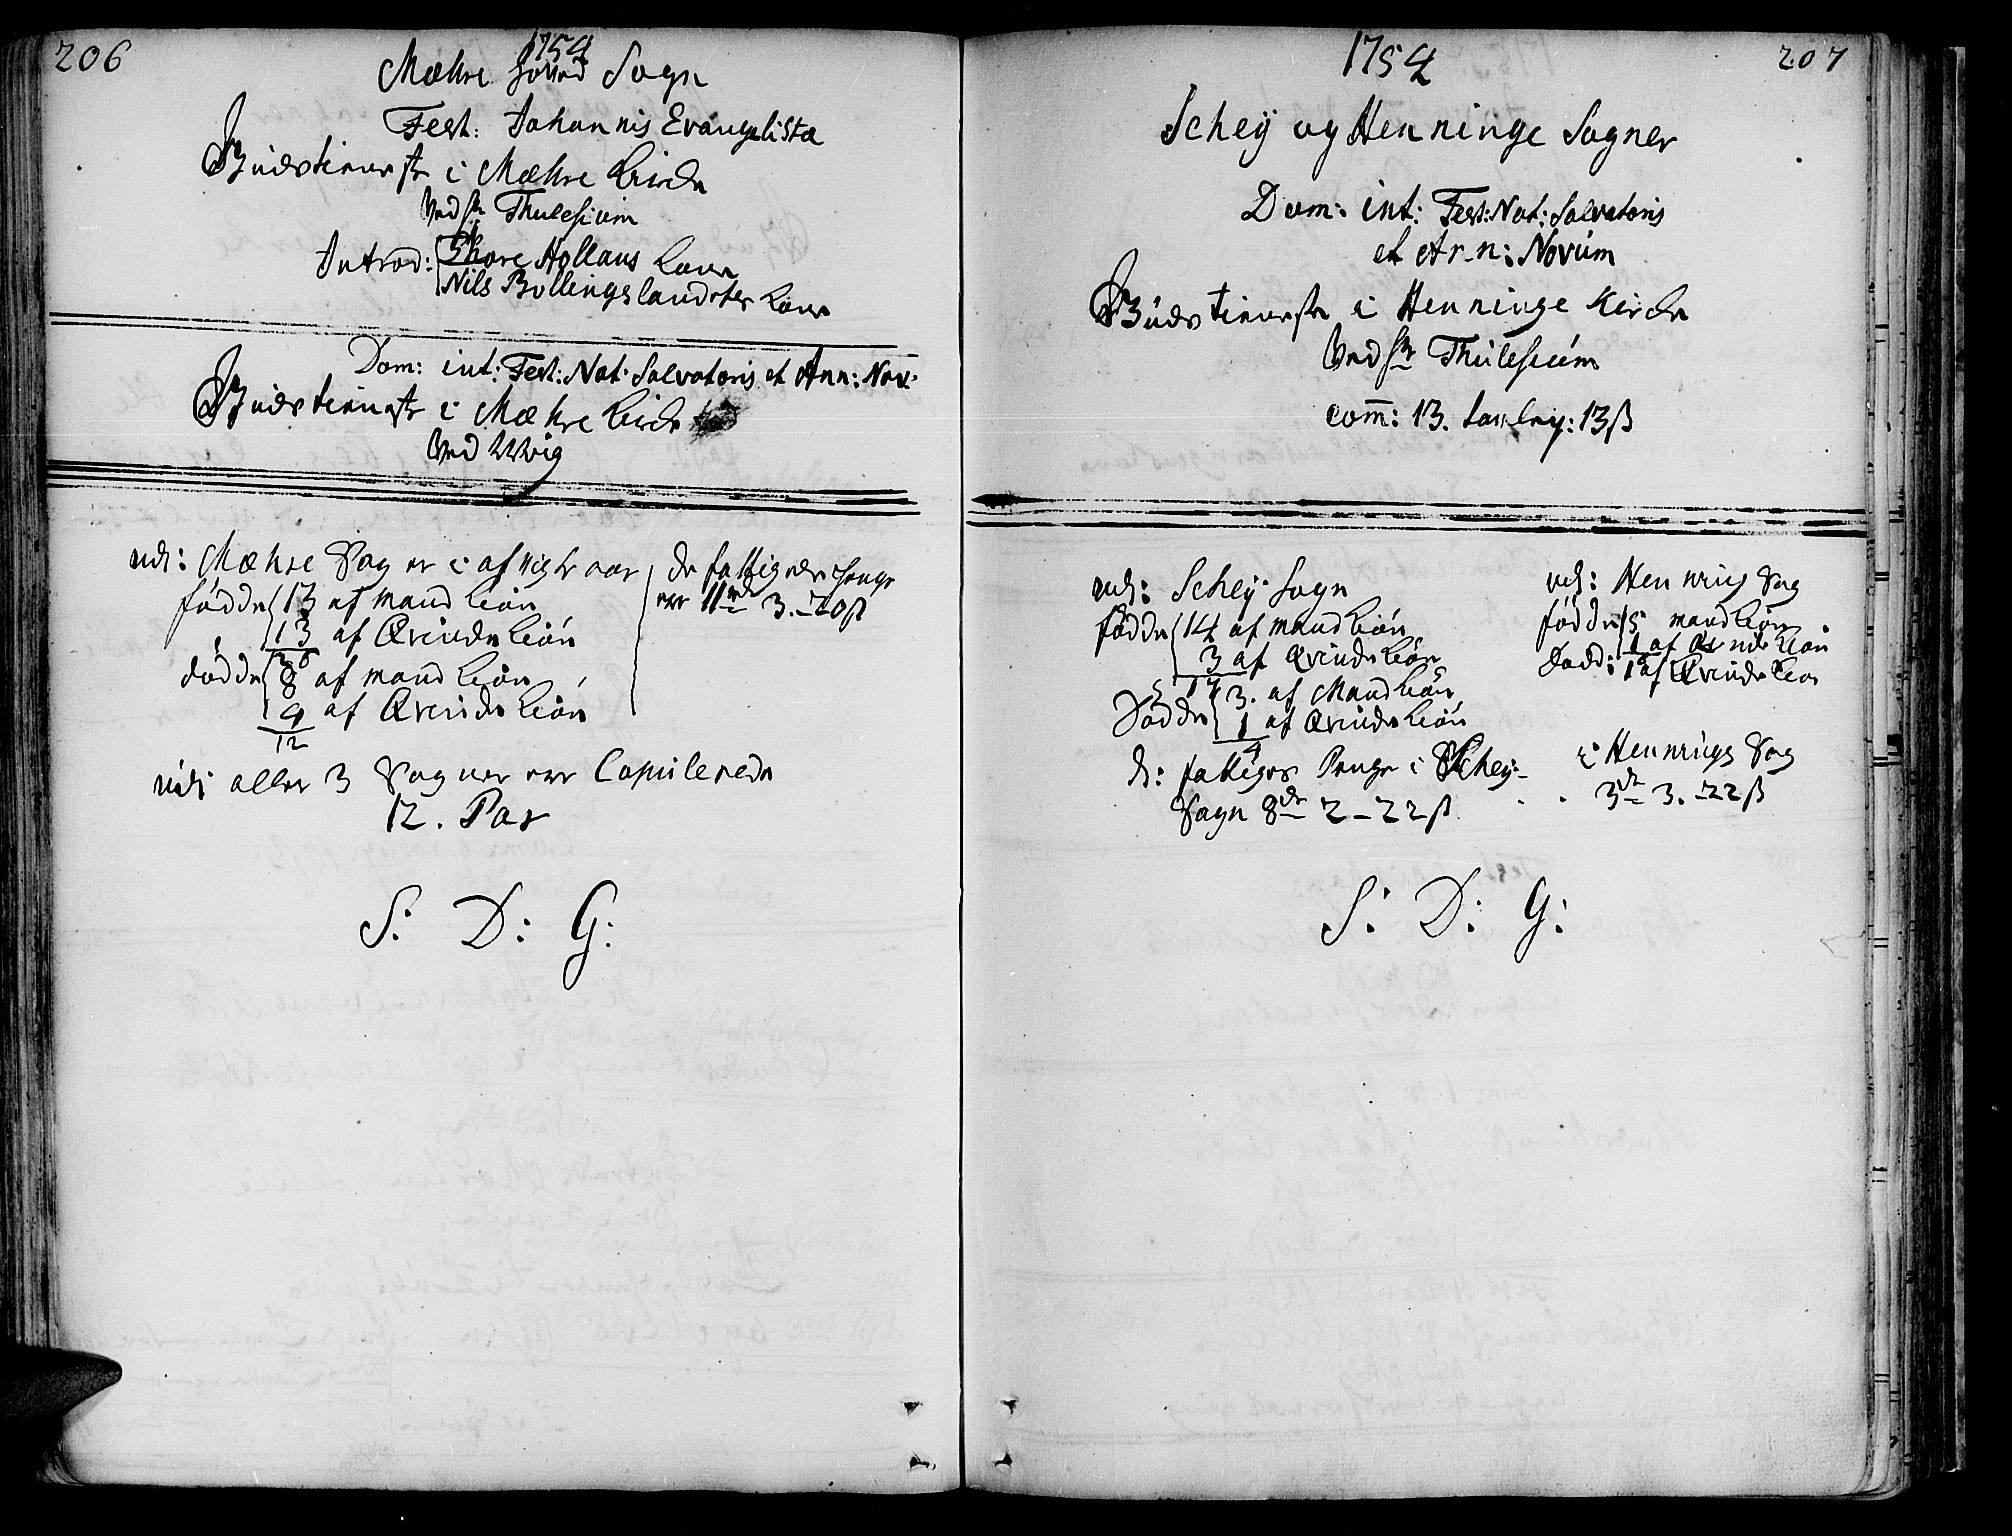 206
1754
Mæhre Hoved Sogn
Fest: Johannis Evangelistæ
Gudstieneste i Mæhre Kirke
Ved Hr Thulesium
Introd: Skore Hollaus Kone
Nils Bollingslandeter Kone
Dom: int: Fest: Nat: Salvatoris et Ann: Nov:
Gudstieneste i Mæhre Kirke
Ved Wwig
udi Mæhre Sog er i afvigte aar
fødde 13 af mand Kiøn
13 af Qvinde Kiøn
26
dødde 8 af mand Kiøn
4 af Qvinde Kiøn
12
de fattiges Penge
er 11rd 3. - 20 ß
udi alle 3 Sogner er Copulerede
12. Par
S: D: G:
1754
207
Schey og Henninge Sogner
Dom: int: Fest: Nat: Salvatoris
et An-n: Novum
Gudstieneste i Henninge Kirke
Ved Hr Thulesium
com: 13. 13 ß
udi: Schey Sogn
fødde 14 af mand Kiøn
3 af Qvinde Kiøn
17
Dødde 3. af Mand Kiøn
1 af Qvinde Kiøn
4
d: fattiges Penge i Schey-
Sogn 8dr 2 - 22 ß
udi: Henning Sog
fødde 5 mand Kiøn
1 af Qvinde Kiøn
Død: 1 af Qvinde Kiøn
i Hennings Sog
3dr 3. - 22 ß
S: D: G: